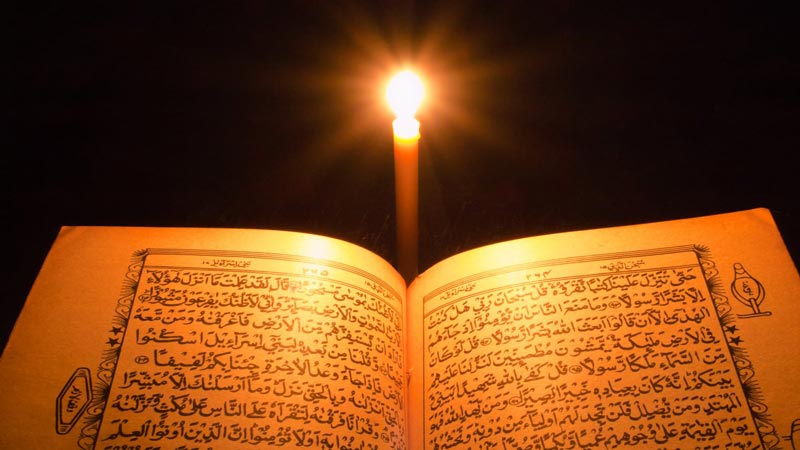 ٢٦٤
حَتّٰى تُنَزِّلَ عَلَيْنَا كِتٰبًا نَّقْرَؤُهٗ قُلْ سُبْحَانَ رَبِّيْ هَلْ كُنْتُ
اِلَّا بَشَرًا رَّسُوْلًا وَمَا مَنَعَ النَّاسَ اَنْ يُّؤْمِنُوْٓا اِذْ جَآءَهُمُ
الْهُدٰٓى اِلَّآ اَنْ قَالُوْٓا اَبَعَثَ اللّٰهُ بَشَرًا رَّسُوْلًا قُلْ لَّوْ كَانَ
فِي الْاَرْضِ مَلٰٓئِكَةٌ يَّمْشُوْنَ مُطْمَئِنِّيْنَ لَنَزَّلْنَا عَلَيْهِمْ
مِّنَ السَّمَآءِ مَلَكًا رَّسُوْلًا قُلْ كَفٰى بِاللّٰهِ شَهِيْدًا بَيْنِيْ وَ
بَيْنَكُمْ اِنَّهٗ كَانَ بِعِبَادِهٖ خَبِيْرًا بَصِيْرًا وَمَنْ يَّهْدِ اللّٰهُ فَهُوَ
الْمُهْتَدِ وَمَنْ يُّضْلِلْ فَلَنْ تَجِدَ لَهُمْ اَوْلِيَآءَ مِنْ دُوْنِهٖ وَنَحْشُرُهُمْ
يَوْمَ الْقِيٰمَةِ عَلٰى وُجُوْهِهِمْ عُمْيًا وَّبُكْمًا
٢٦٥
لَاَظُنُّكَ يٰمُوْسٰى مَسْحُوْرًا قَالَ لَقَدْ عَلِمْتَ مَآ اَنْزَلَ هٰٓؤُلَآءِ
اِلَّا رَبُّ السَّمٰوٰتِ وَالْاَرْضِ بَصَآئِرَ وَاِنِّيْ لَاَظُنُّكَ يٰفِرْعَوْنُ مَثْبُوْرًا
فَاَرَادَ اَنْ يَّسْتَفِزَّهُمْ مِّنَ الْاَرْضِ فَاَغْرَقْنٰهُ وَمَنْ مَّعَهٗ
جَمِيْعًا وَّقُلْنَا مِنْۢ بَعْدِهٖ لِبَنِيْٓ اِسْرَآءِيْلَ اسْكُنُوا
الْاَرْضَ فَاِذَا جَآءَ وَعْدُ الْاٰخِرَةِ جِئْنَا بِكُمْ لَفِيْفًا
وَبِالْحَقِّ اَنْزَلْنٰهُ وَبِالْحَقِّ نَزَلَ وَمَآ اَرْسَلْنٰكَ اِلَّا مُبَشِّرًا
وَّنَذِيْرًا وَقُرْاٰنًا فَرَقْنٰهُ لِتَقْرَاَهٗ عَلَى النَّاسِ عَلٰى مُكْثٍ وَّنَزَّلْنٰهُ
تَنْزِيْلًا قُلْ اٰمِنُوْا بِهٖٓ اَوْ لَا تُؤْمِنُوْا اِنَّ الَّذِيْنَ اُوْتُوا الْعِلْمَ